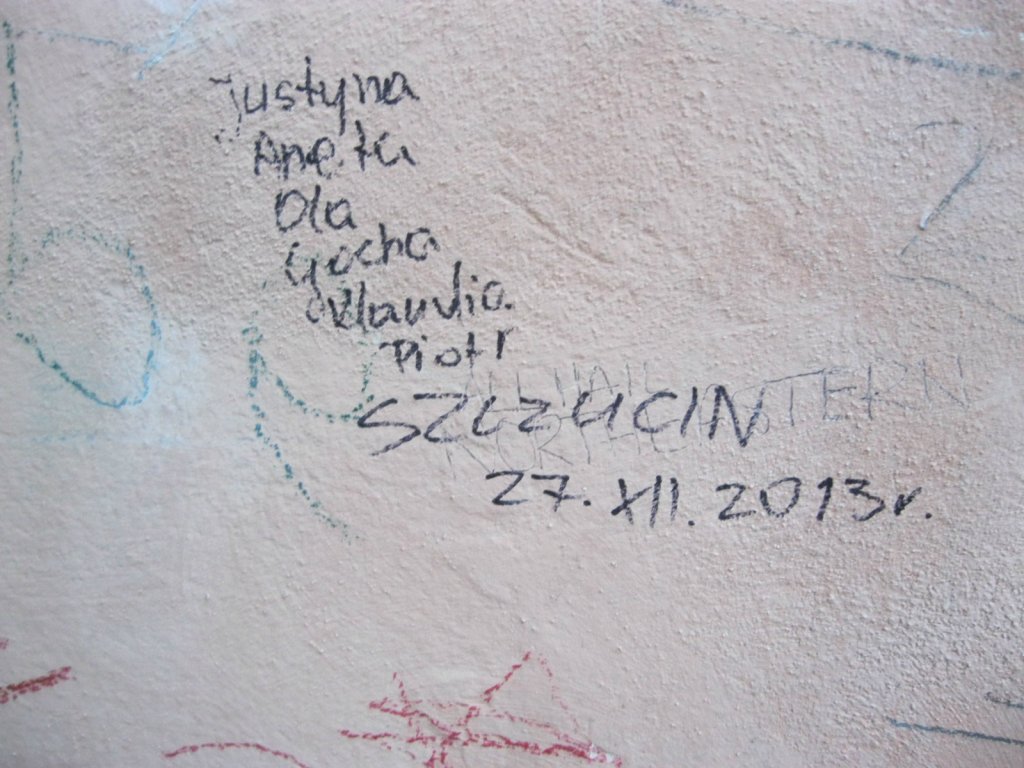 Justyna
Aneta
Ola
Gocha
Klaudia
Piotr
SZCZUCIN
27. XII. 2013r.